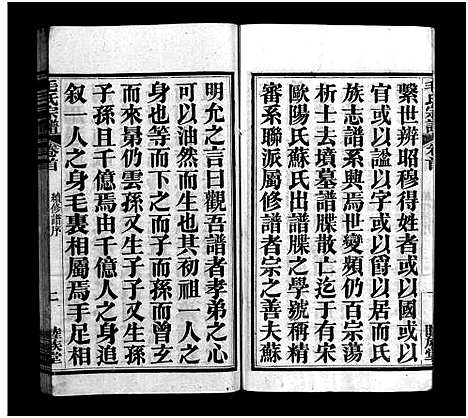 毛氏宗譜 卷首
繫世辨昭穆得姓者或以國或以
官或以諡以字或以爵以居而氏
族志譜系興焉世變頻仍百宗蕩
析士去墳墓譜牒散亡迄于有宋
歐陽氏蘇氏出譜牒之學號稱精
審系聯派屬修譜者宗之善夫蘇
睦族堂
明允之言曰觀吾譜者孝弟之心
可以油然而生也其初祖一人之
身也等而下之禰而祖而曾玄
而來晜仍雲孫又生子子又生孫
子孫且千億焉由千億人之身追
叙一人之身毛裏相屬焉手足相
毛氏宗譜 卷首 續修譜序 二 睦族堂